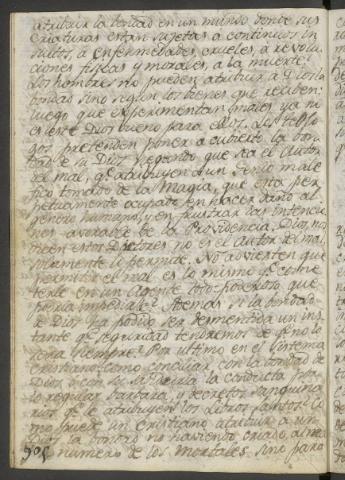 atribuir la bondad en un mundo donde sus
criaturas estan sujetas a continuos in
sultos, a enfermedades crueles, a revolu
ciones fisicas y morales, a la muerte?
Los hombres no pueden atribuir a Dios la
bondad sino segun los bienes que reciben:
luego que experimentan males, ya no
es este Dios bueno para ellos. Los Teolo
gos pretenden poner a cubierto la bon
dad de su Dios negando que sea el autor
del mal, qe atribuyen a un Genio male
fico tomado de la Magia, que está per
petuamente ocupado en hacer daño al
genero humano, y en frustrar las intencio
nes favorables de la Providencia. Dios, nos
dicen estos Doctores no es el autor del mal,
solamente lo permite. No advierten que
permitir el mal es lo mismo qe come
terle en un Agente todo poderoso, que
podria impedirle? Ademas si la bondad
de Dios ha podido ser desmentida un ins
tante qe seguridad tendremos de qe no lo
sera siempre? Por ultimo en el sistema
cristiano como conciliar con la bondad de
Dios, o con su sabiduria la conducta por
lo regular barbara, y decretos sanguina
rios qe le atribuyen los Libros santos? Co
mo puede un cristiano atribuir a un
Dios la bondad no haviendo criado, al ma
numero de los mortales, sino para